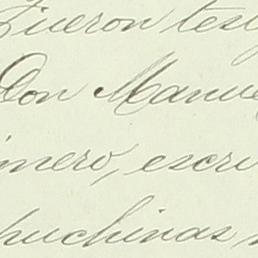 fueron tes
Don Manue
mero, escri
huchinas,